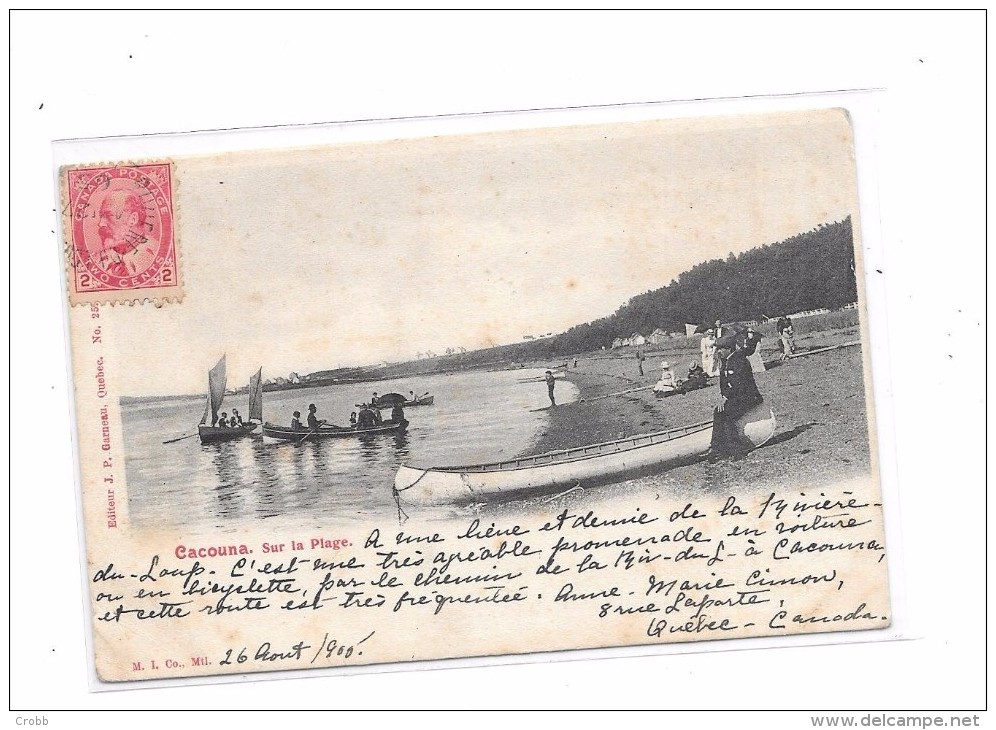 CANADA POSTAGE
2 TWO CENTS 2
Editeur J. P. Garneau, Quebec. No. 25
Cacouna. Sur la Plage.
A une lieue et demie de la Rivière-
du-Loup. C'est une très agréable promenade en voiture
ou en bicyclette, par le chemin de la Riv-du-L- à Cacouna,
et cette route est très fréquentée. Anne-Marie Cimon,
8 rue Laporte,
Québec - Canada.
M. I. Co., Mtl.
26 Aout 1905.
Crobb
www.delcampe.net